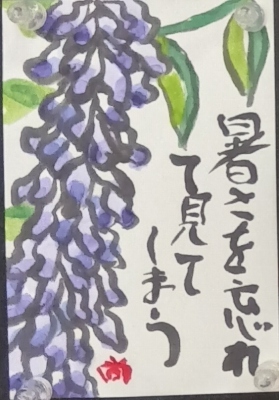 暑さを忘れ
て見て
しまう